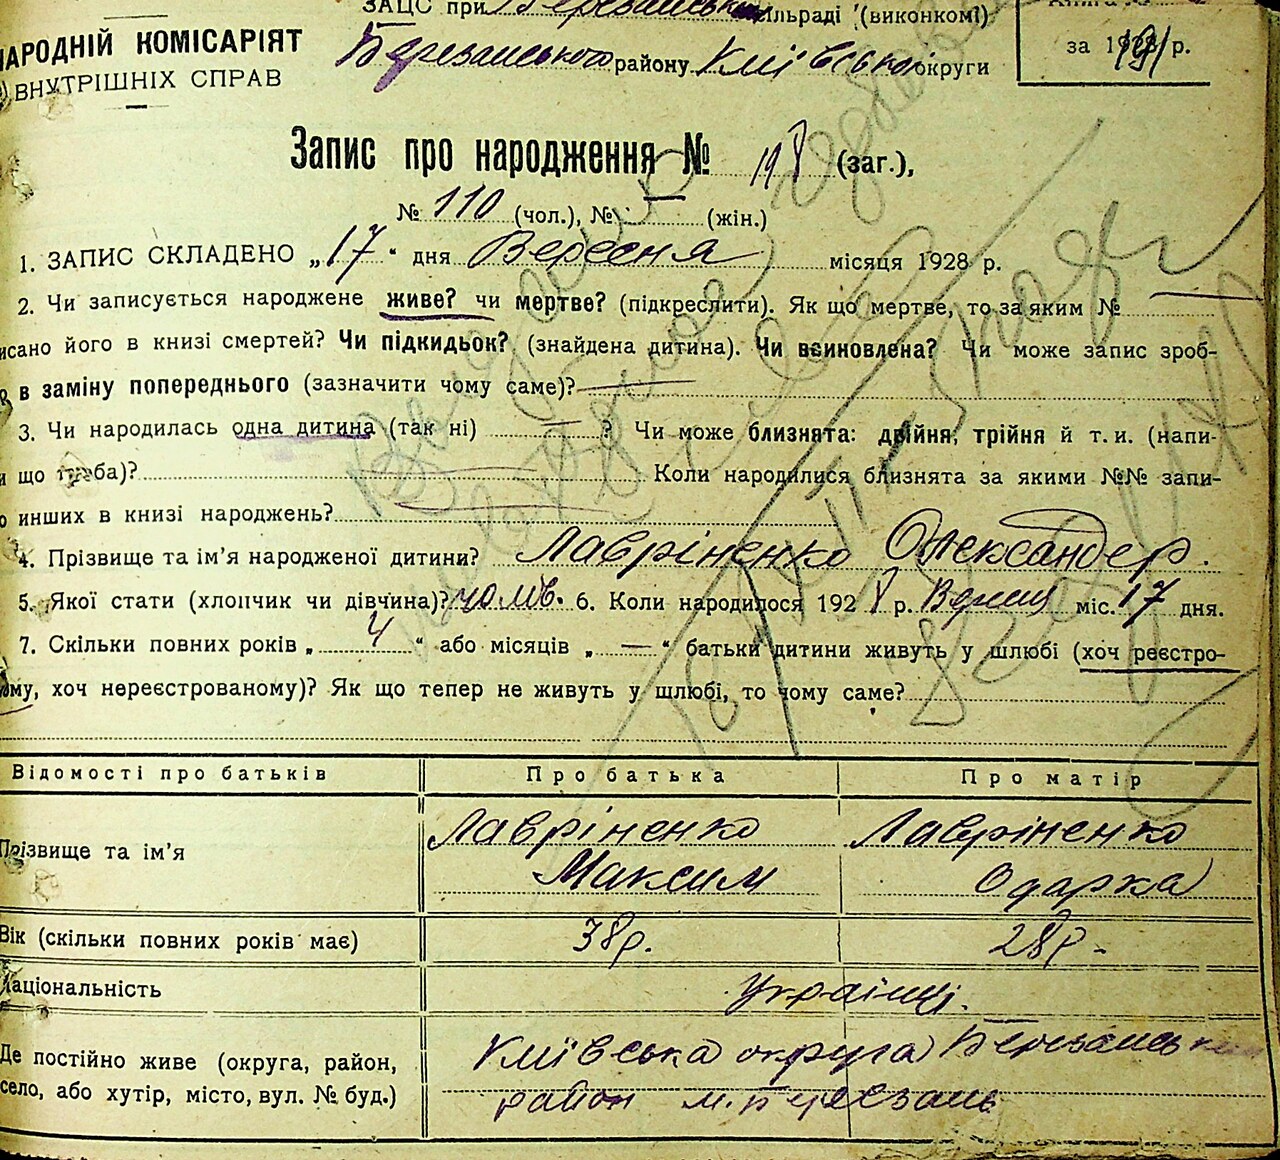 ЗАЦС при Березанськ сільраді (виконкомі)
НАРОДНІЙ КОМІСАРІЯТ
ВНУТРІШНІХ СПРАВ
Березанського району Київської округи
за 192 р.
Запис про народження № 198 (заг.),
№ 110 (чол.), № — (жін.)
1. ЗАПИС СКЛАДЕНО „17“ дня Вересня місяця 1928 р.
2. Чи записується народжене живе? чи мертве? (підкреслити). Як що мертве, то за яким № —
исано його в книзі смертей? Чи підкидьок? (знайдена дитина). Чи всиновлена? Чи може запис зроб-
в заміну попереднього (зазначити чому саме)? —
3. Чи народилась одна дитина (так ні) — ? Чи може близнята: двійня, трійня й т. и. (напи-
и що треба)? — Коли народилися близнята за якими №№ запи-
о инших в книзі народжень?
4. Прізвище та ім'я народженої дитини? Лавріненко Олександер.
5. Якої стати (хлопчик чи дівчина)? чолов. 6. Коли народилося 1928 р. Верисня міс. 17 дня.
7. Скільки повних років „ 4 “ або місяців „ — “ батьки дитини живуть у шлюбі (хоч реєстро-
ому, хоч нереєстрованому)? Як що тепер не живуть у шлюбі, то чому саме?
Відомості про батьків Про батька Про матір
Прізвище та ім'я Лавріненко Максим Лавріненко Одарка
Вік (скільки повних років має) 38р. 28р.
Національність Українці.
Де постійно живе (округа, район, Київська округа Березанськ
село, або хутір, місто, вул. № буд.) район м. Березань